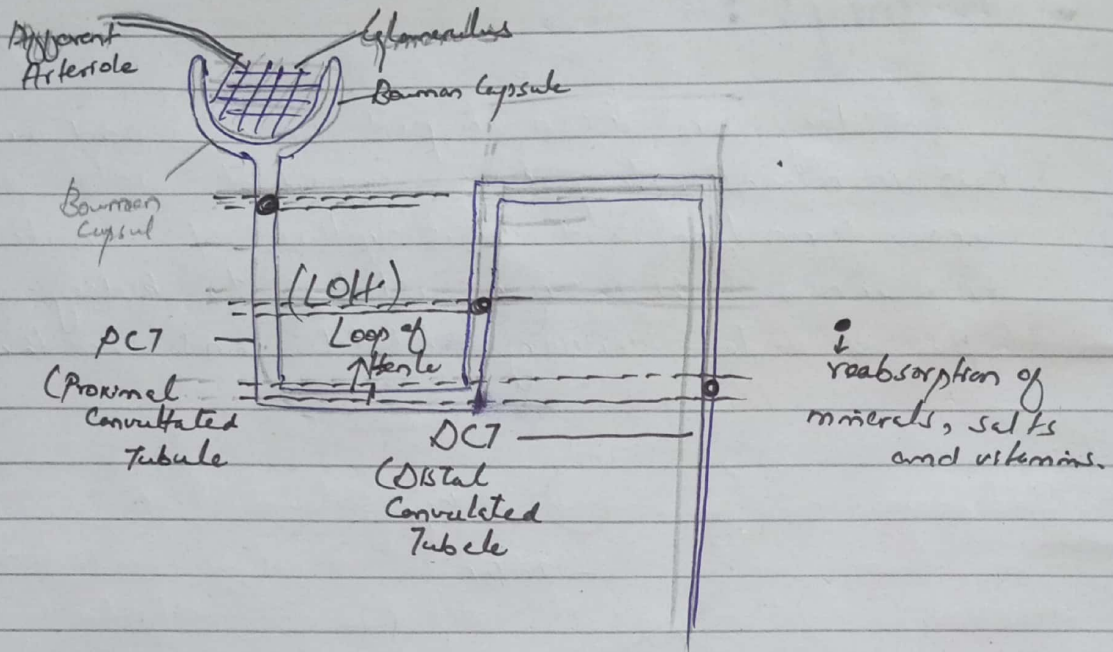 Afferent
Arteriole
Glomerulus
Bowman Capsule
Bowman
Capsul
(LOH)
Loop of
Henle
PCT
(Proximal
Convultated
Tubule
DCT
(Distal
Convulated
Tubele
reabsorption of
minerals, salts
and vitamins.